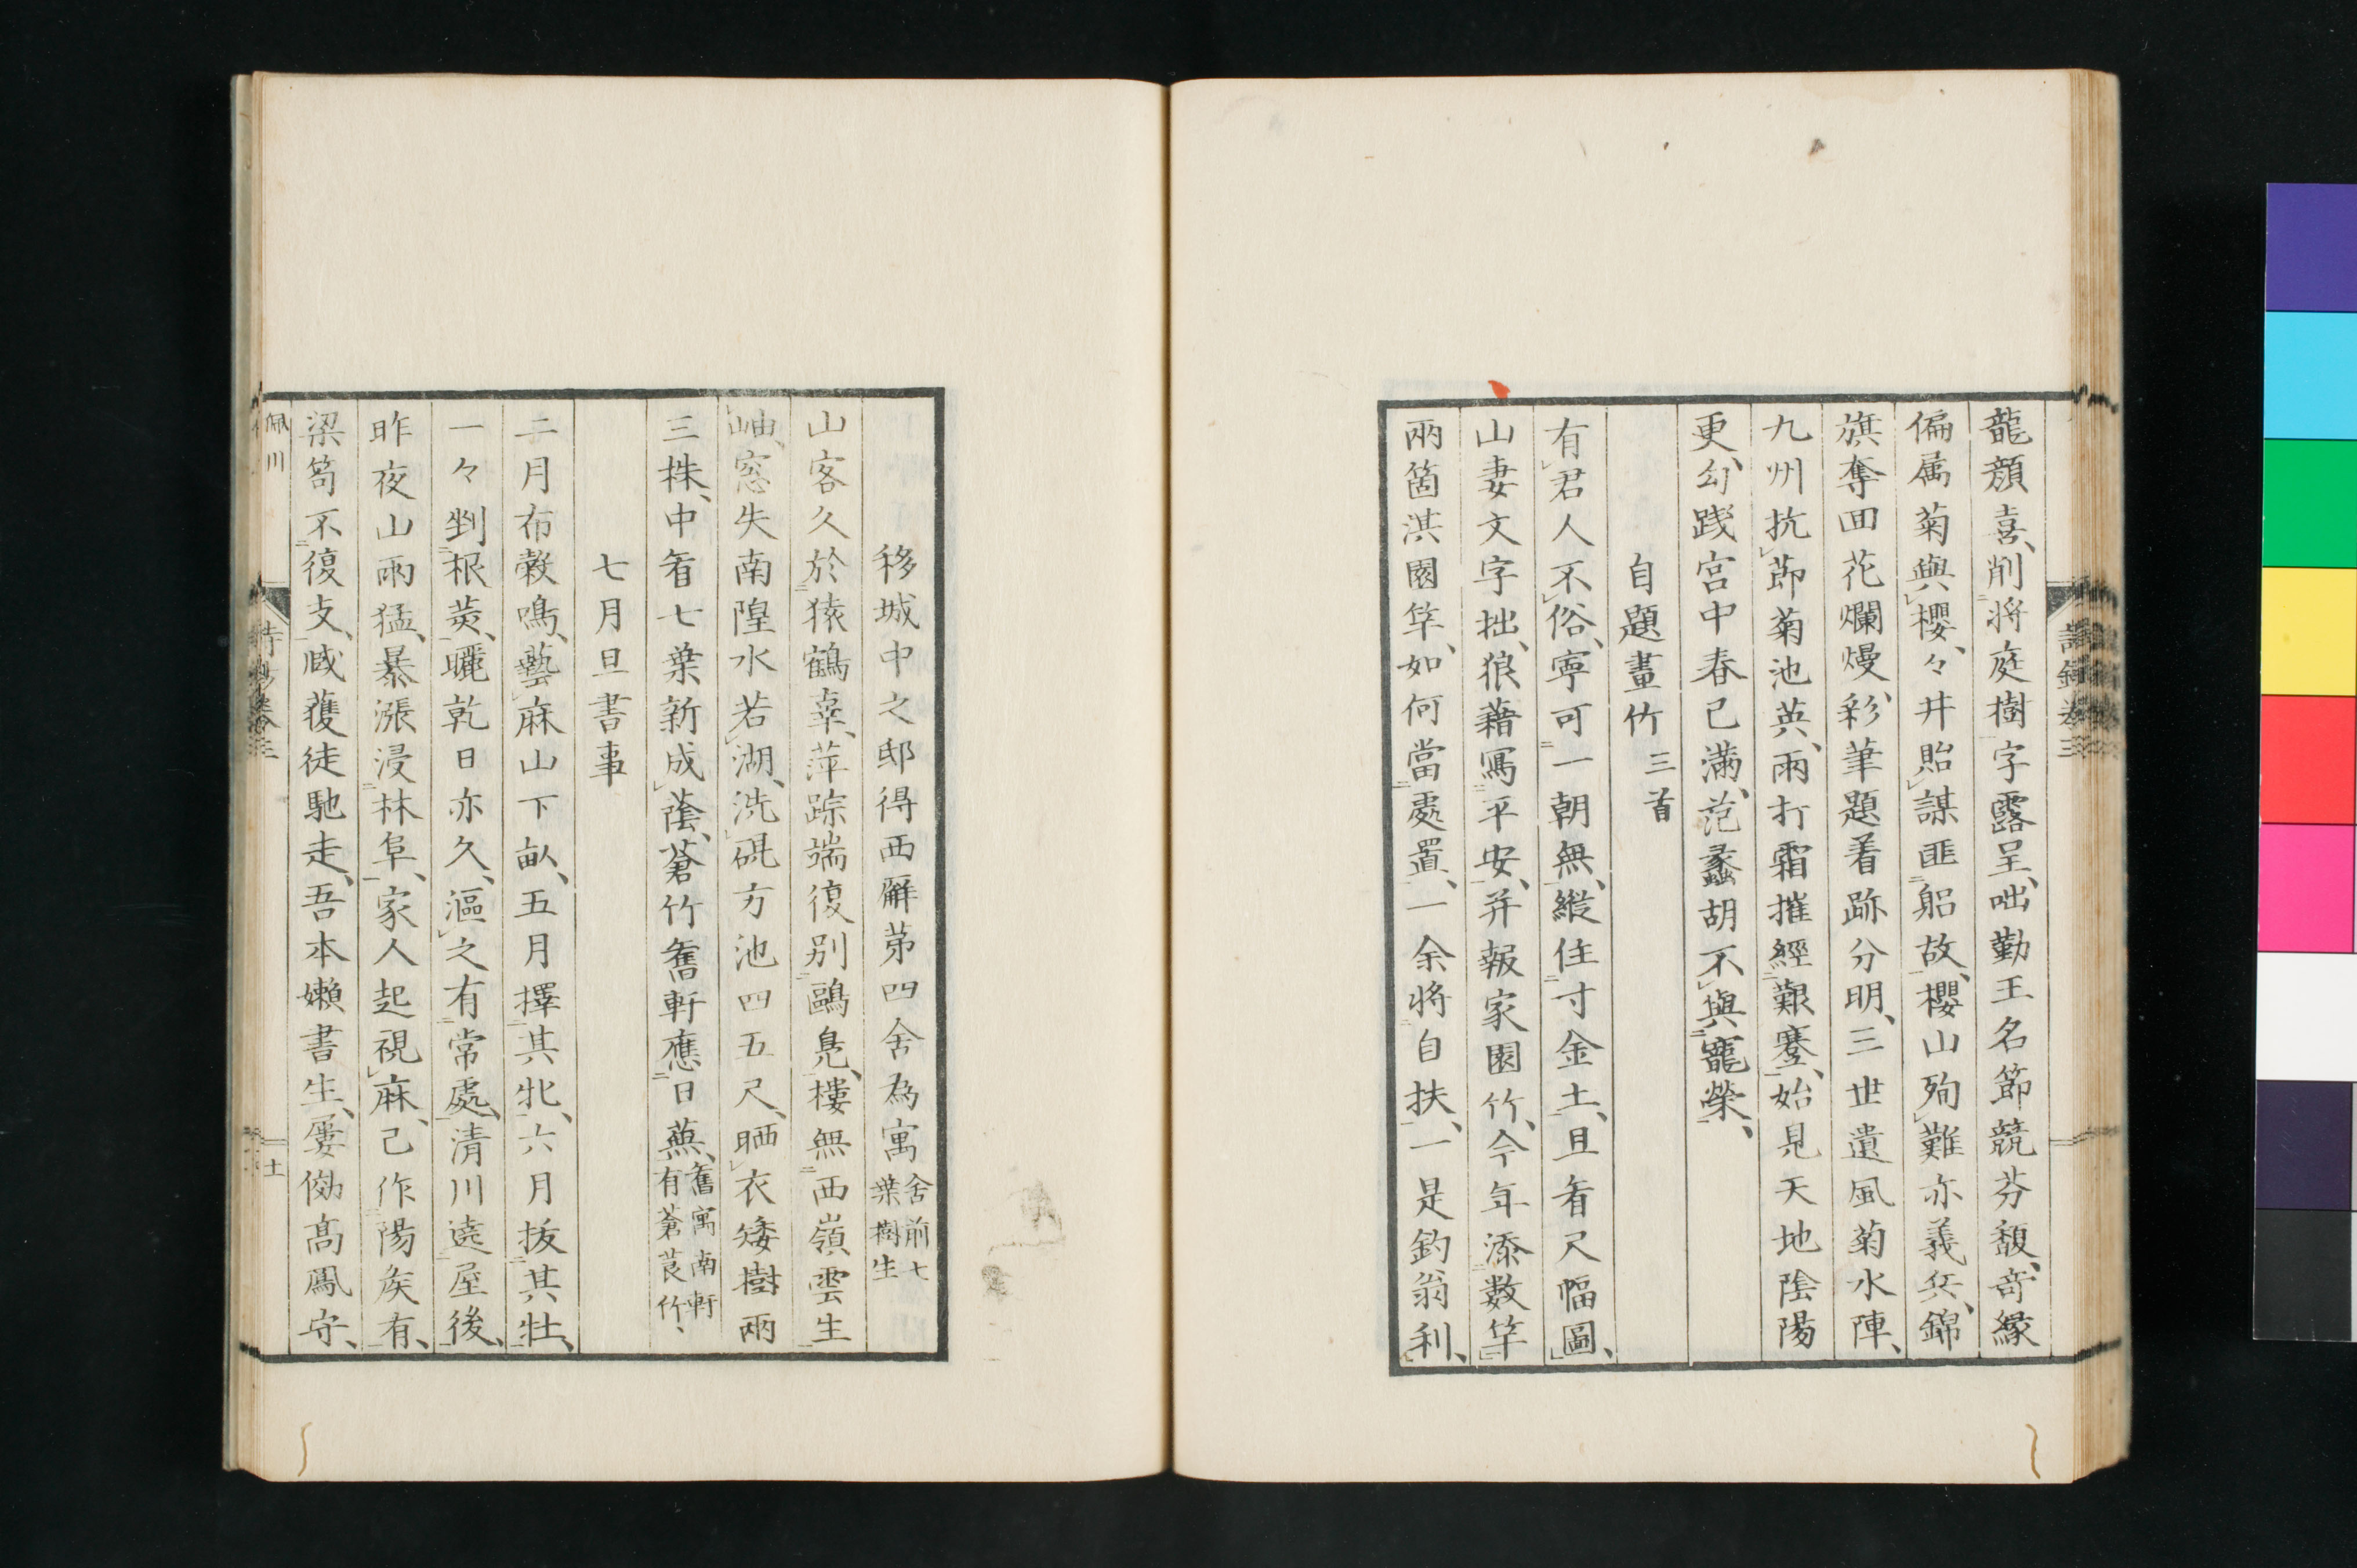 龍顏喜、削將庭樹字露呈、咄勤王名節競芬馥、奇緣
偏属菊與櫻、々井貽謀匪躬故、櫻山殉難亦義兵、錦
旗奪回花爛熳、彩筆題着跡分明、三世遺風菊水陣、
九州抗節菊池英、雨打霜摧經艱蹇、始見天地陰陽
更、勾踐宮中春已滿、范蠡胡不與寵榮、
自題畫竹 三首
有君人不俗、寧可一朝無、縱住寸金土、且看尺幅圖、
山妻文字拙、狼藉寫平安、并報家園竹、今年添數竿
兩箇淇園竿、如何當處置、一余將自扶、一是釣翁利、
詩鈔卷三
移城中之邸得西廨第四舍為寓 舍前七
葉樹生
山客久於猿鶴辜、萍踪端復別鷗鳧、樓無西嶺雲生
岫、窓失南隍水若湖、洗硯方池四五尺、晒衣矮樹兩
三株、中看七葉新成蔭、蒼竹舊軒應日蕪、 舊寓南軒
有蒼莨竹、
七月旦書事
二月布穀鳴、藝麻山下畝、五月擇其牝、六月拔其牡、
一々剉根荄、曬乾日亦久、漚之有常處、清川遶屋後、
昨夜山雨猛、暴漲浸林阜、家人起視麻、已作陽矦有、
梁笱不復支、臧獲徒馳走、吾本嬾書生、屢傚高鳳守、
佩川